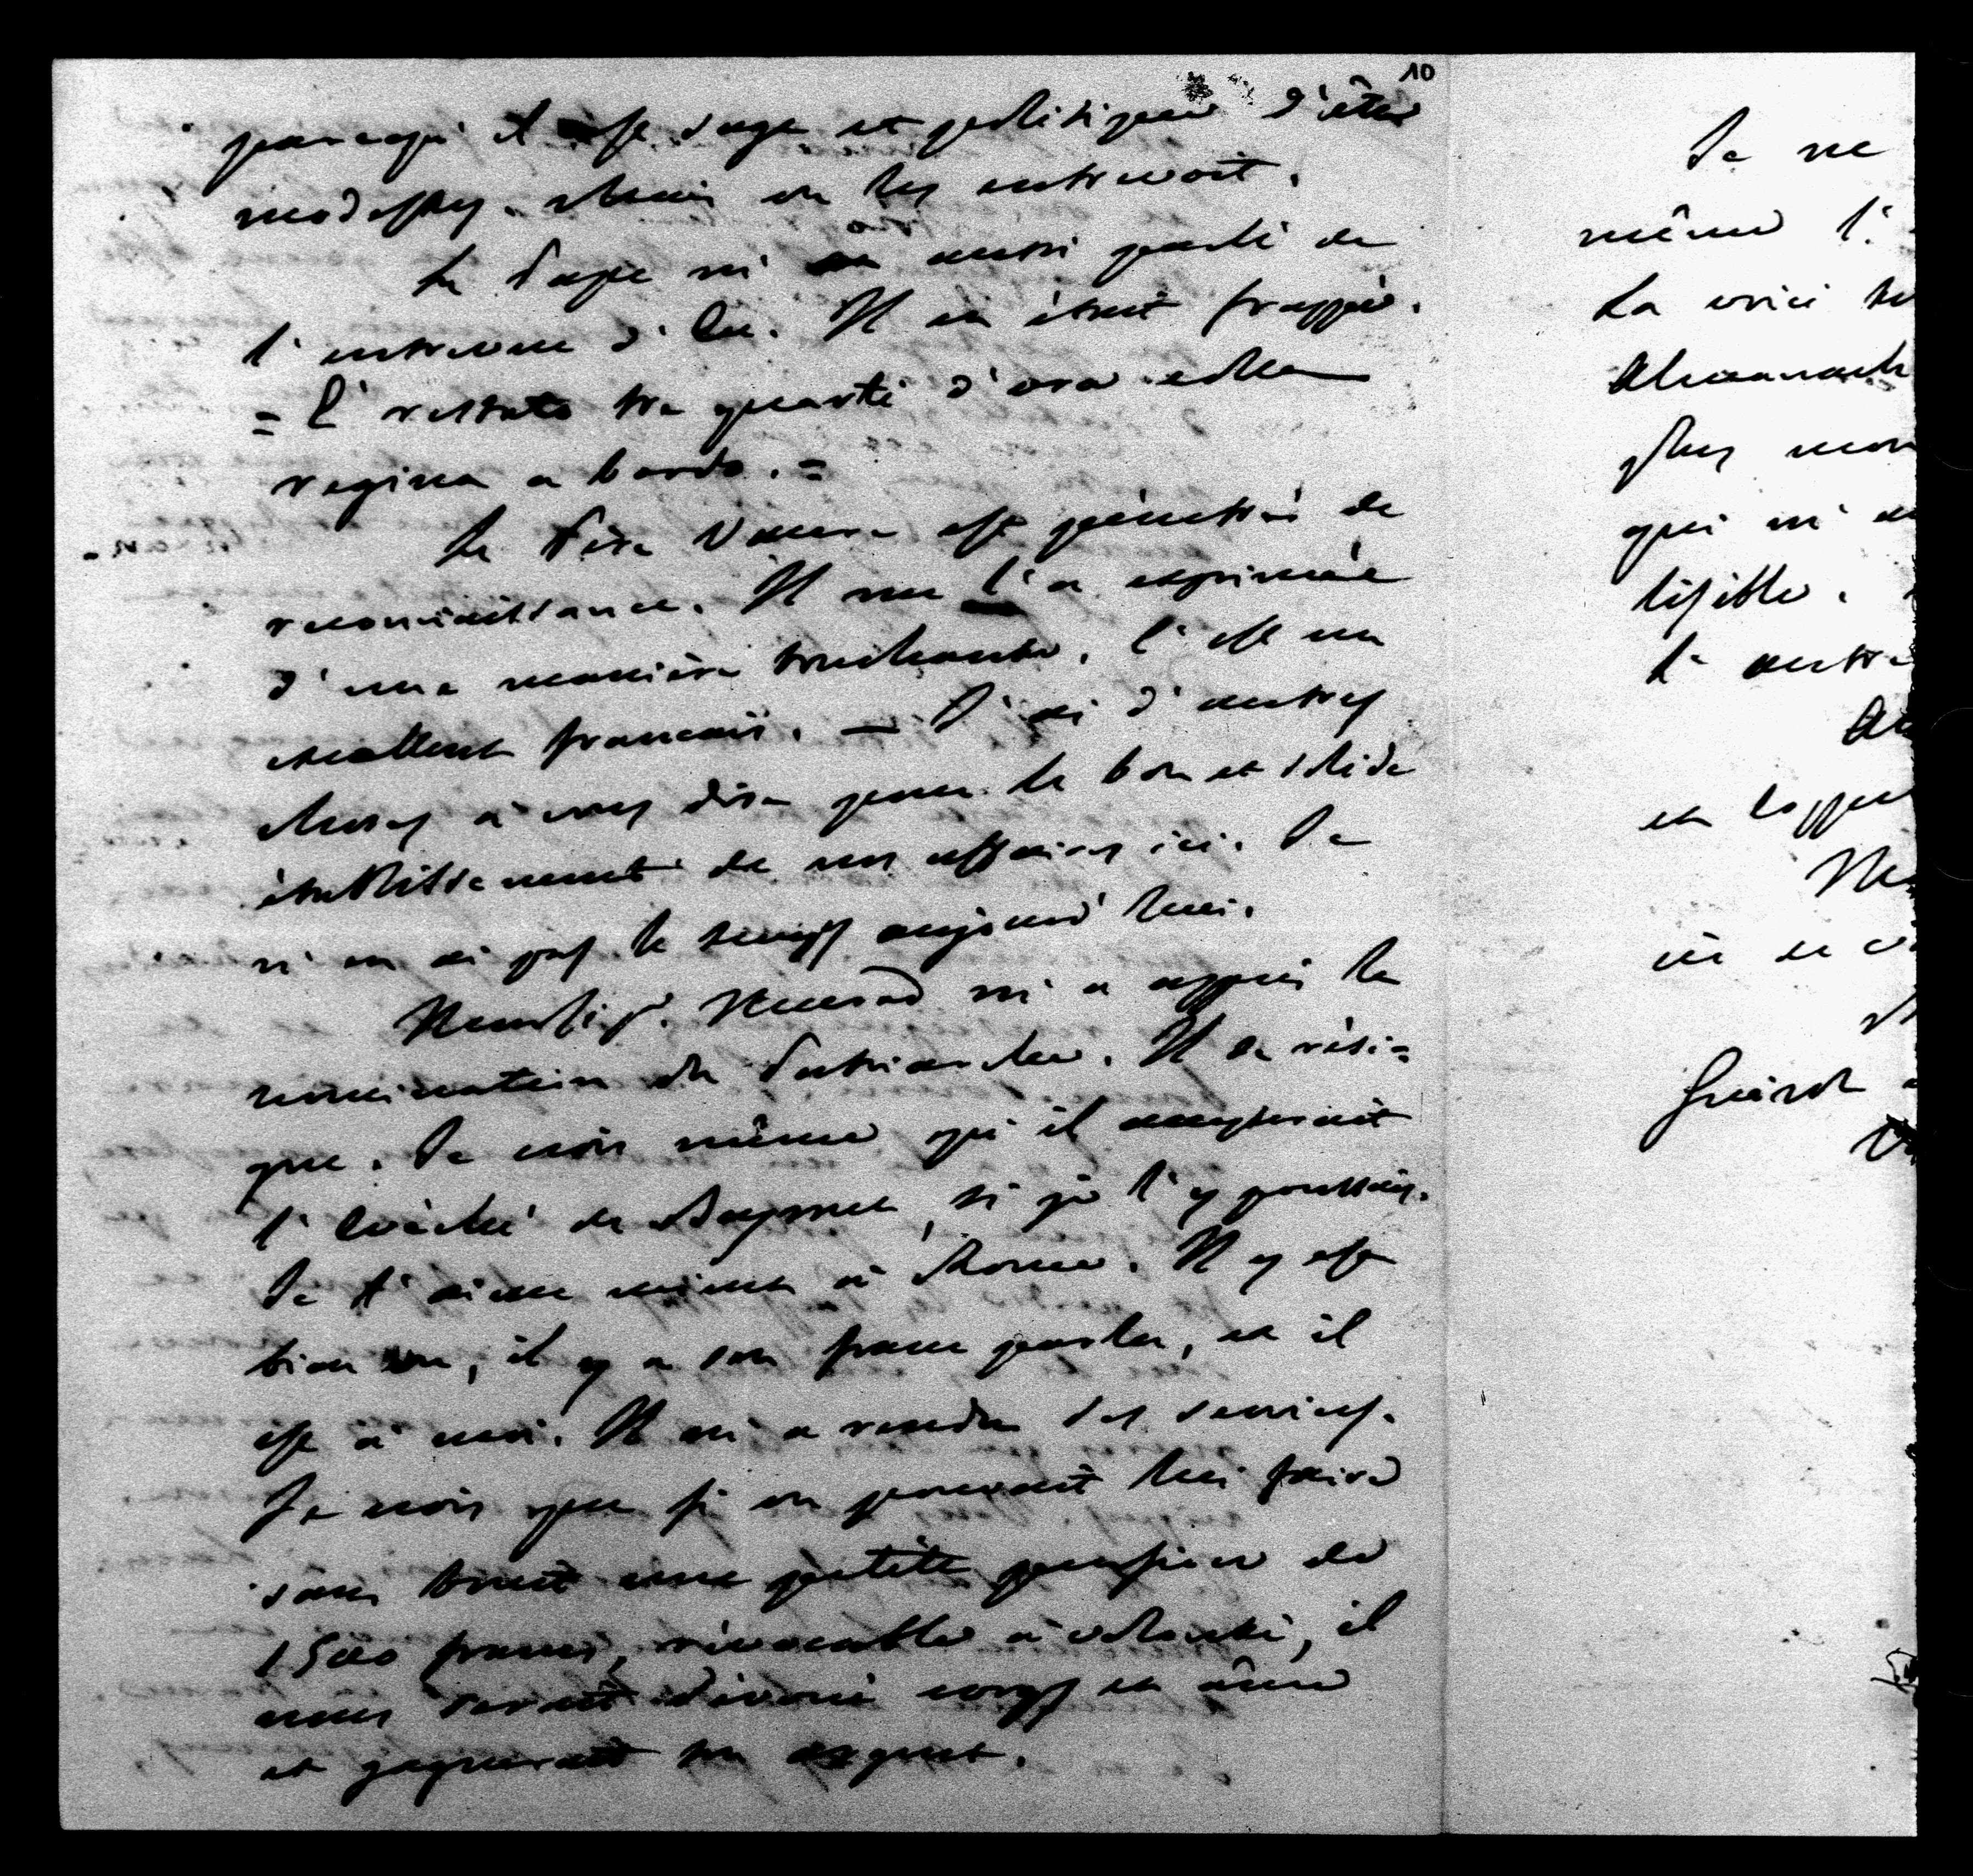 10
parcequ'il est sage et politique d'être
modestes. Mais on les entrevoit.
Le Pape m'a aussi parlé de
l'entrevue d'Eu. Il en étoit frappé.
= È restato tre quarti d'ora colla
regina a bordo. =
Le Père Vaures est pénétré de
reconnaissance. Il me l'a exprimée
d'une manière touchante. C'est un
excellent français. — J'ai d'autres
choses à vous dire pour le bon et solide
établissement de nos affaires ici. Je
n'en ai pas le temps aujourd'hui.
m'a appris la
nomination du Patriarche. Il se rési=
gne. Je crois même qu'il accepterait
l'Evêché de si je l'y poussais.
Je l'aime mieux à Rome. Il y est
bien vu, il y a son franc parler, et il
est à moi. Il m'a rendu des services.
Je crois que si on pouvait lui faire
sans bruit une petite pension de
1500 francs, révocable à volonté, il
nous serait dévoué corps et âme
et gagnerait son argent.
Je ne
même l'
La voici
Almanach
plus mon
qui m'a
lisible.
l'autre
et